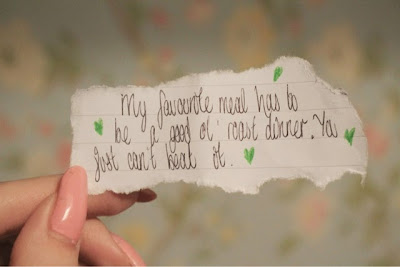 My favourite meal has to
be a good ol' roast dinner. You
just can't beat it.